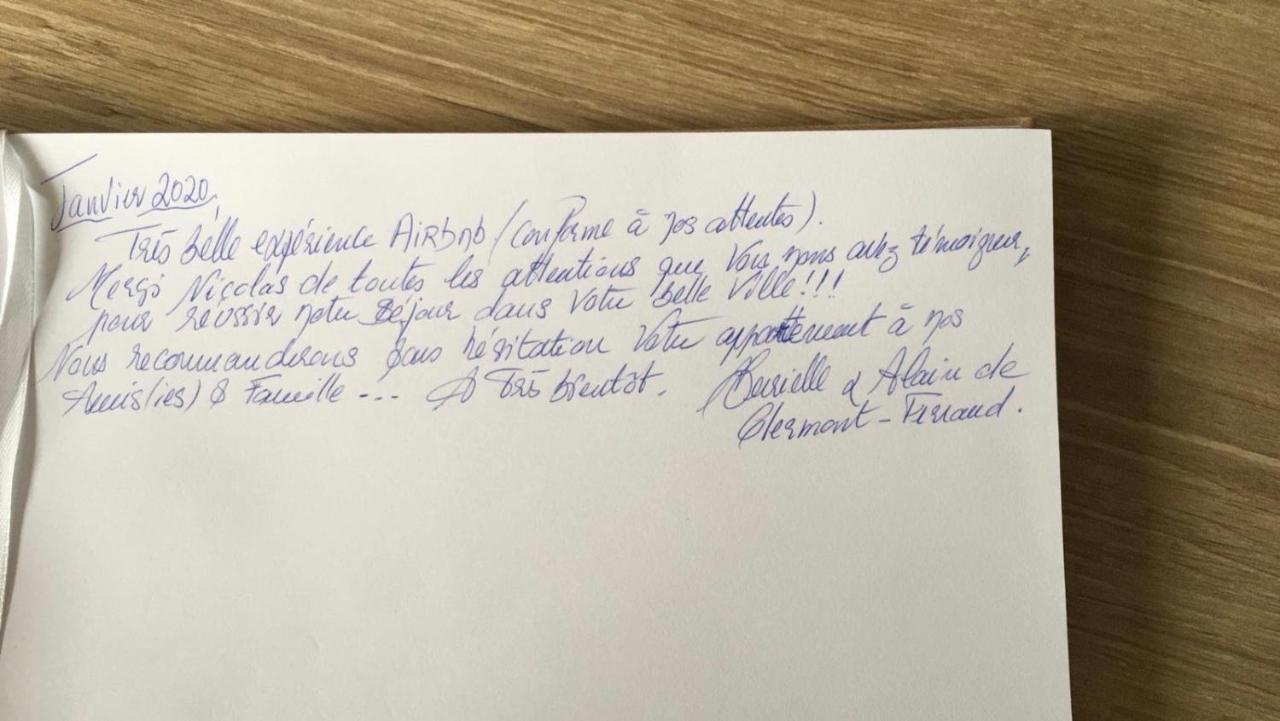 Janvier 2020,
Très belle expérience AirBnb (conforme à nos attentes).
Merci Nicolas de toutes les attentions que vous nous avez témoigner,
pour réussir notre séjour dans votre belle ville!!!
Nous recommanderons sans hésitation votre appartement à nos
Amis(ies) & Famille --- A Très bientôt.
& Alain de
Clermont-Ferrand.